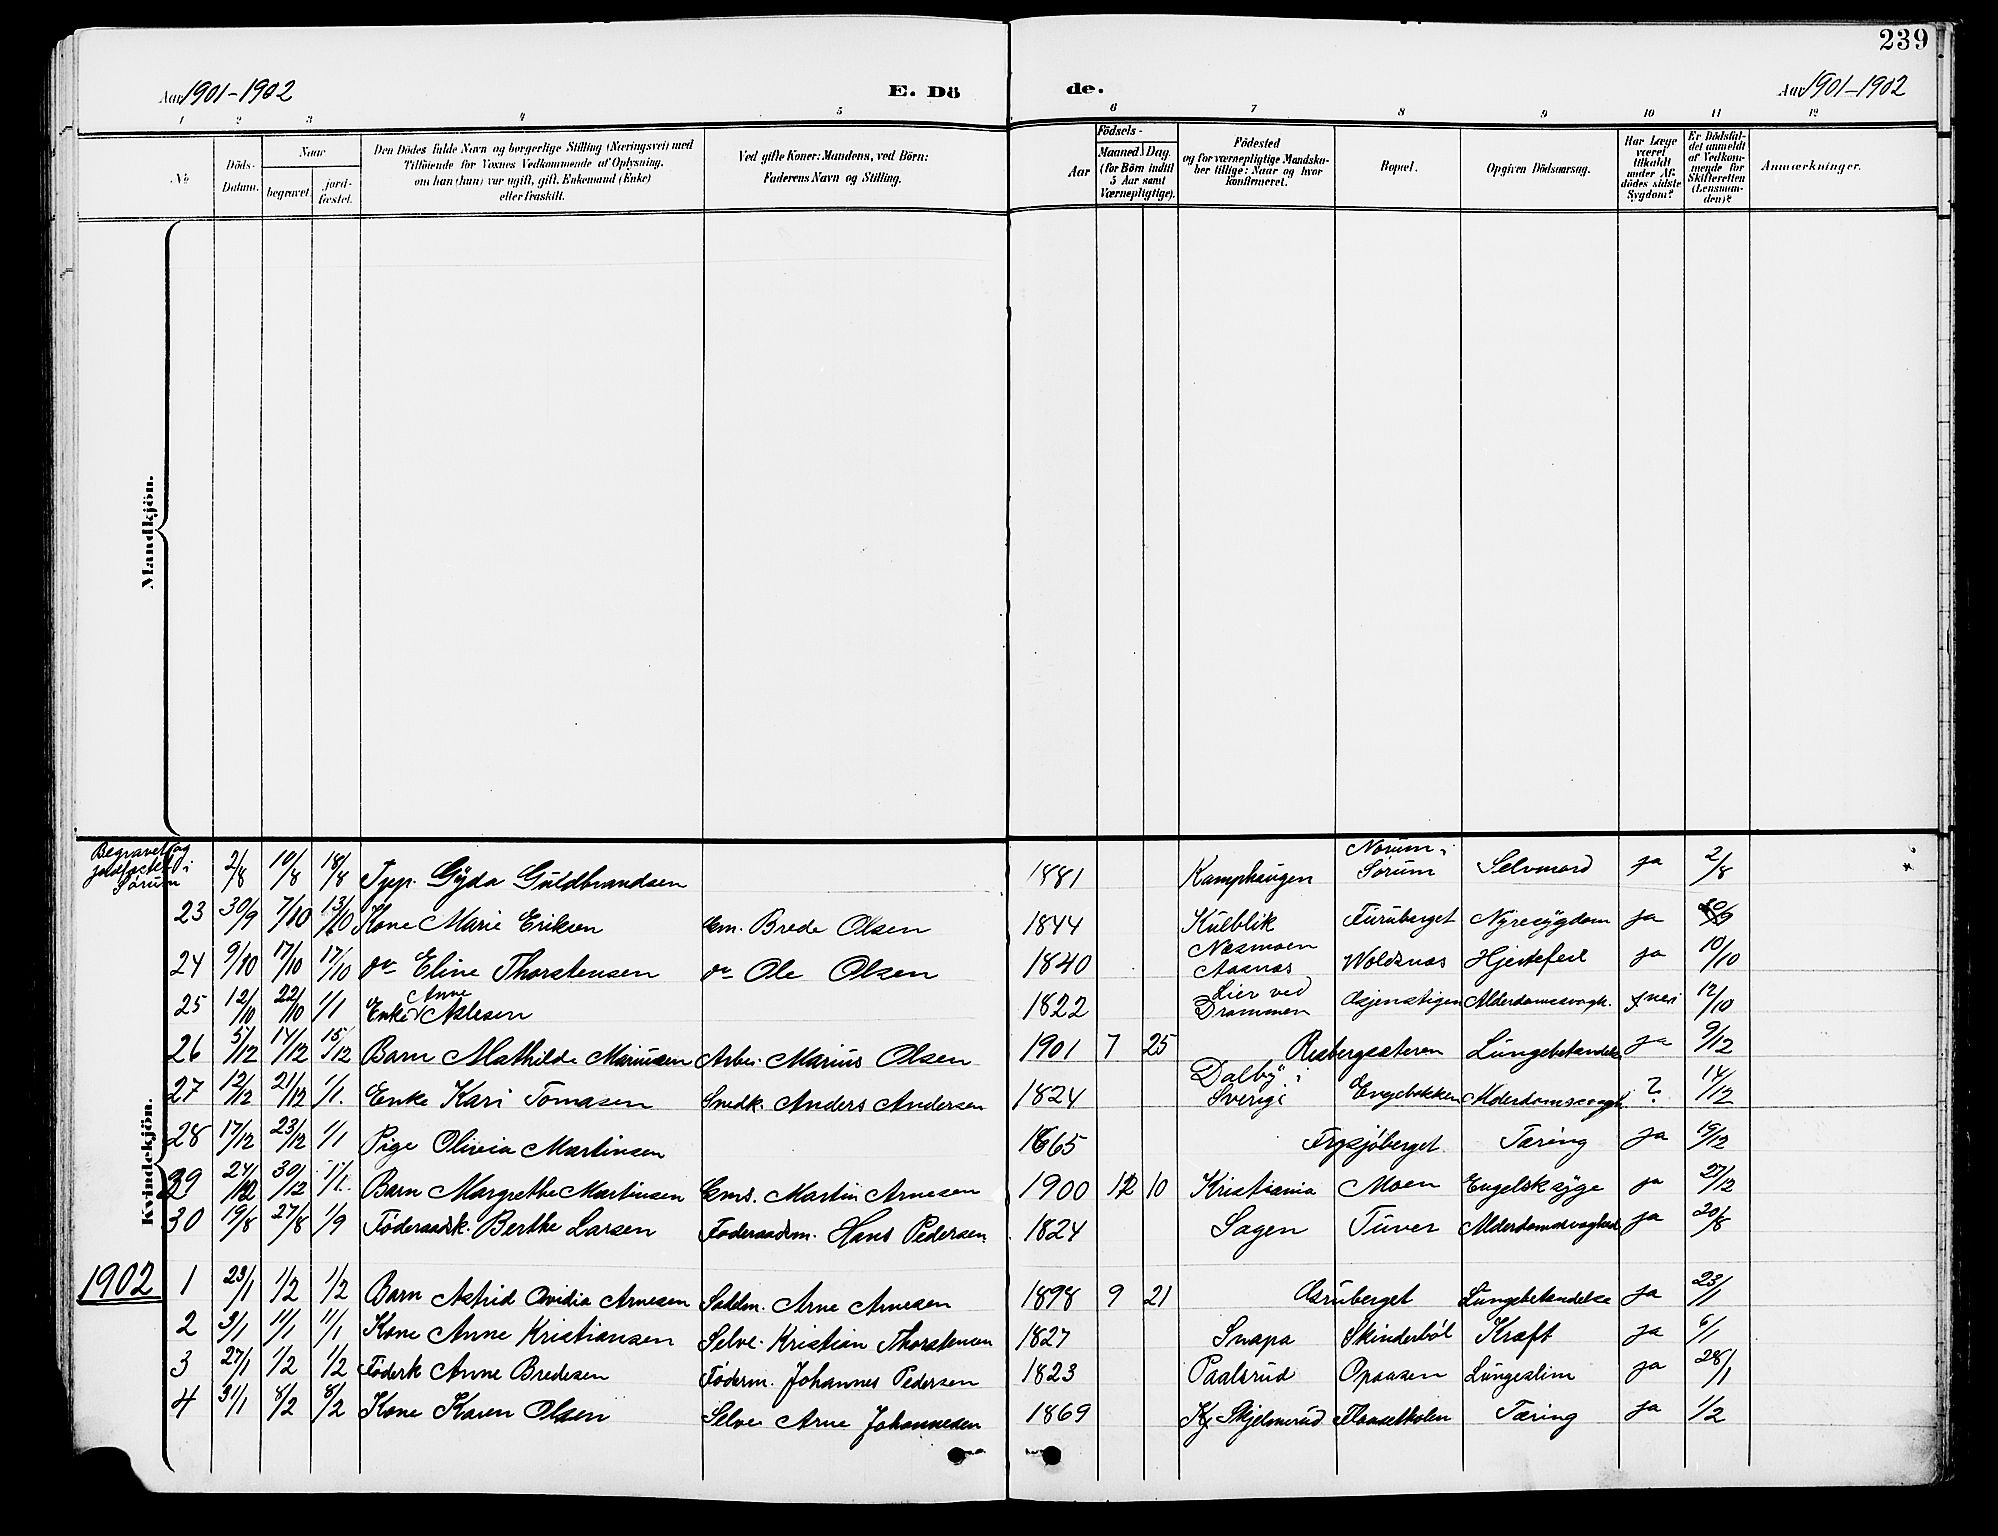 239
Aar 1901-1902 E. Dö de. Aar 1901-1902
1 2 3 4 5 6 7 8 9 10 11 12
No
Döds-Datum.
Naar
begravet.
jord-fæstet.
Den Dödes fulde Navn og borgerlige Stilling (Næringsvei) med
Tilföiende for Voxnes Vedkommende af Oplysning,
om han (hun) var ugift, gift, Enkemand (Enke)
eller fraskilt.
Ved gifte Koner: Mandens, ved Börn:
Faderens Navn og Stilling.
Födsels-
Aar
Maaned. Dag.
(for Börn indtil
5 Aar samt
Værnepligtige).
Födested
og for værnepligtige Mandska-
ber tillige: Naar og hvor
konfirmeret.
Bopæl.
Opgiven Dödsaarsag.
Har Læge
været
tilkaldt
under Af-
dödes sidste
Sygdom?
Er Dödsfal-
det anmeldt
af Vedkom-
mende for
Skifteretten
(Lensman-
den)?
Anmærkninger.
Mandkjön.
Kvindekjön.
Begravet og
jordfæstet i
Sørum
2/8 10/8 18/8 Tjep. Gyda Guldbrandsen 1881 Kamphaugen Norum i Sørum Selvmord ja 2/8
23 30/9 7/10 13/10 Kone Marie Eriksen Em. Brede Olsen 1844 Kulblik Furuberget Nyresygdom ja 30/9
24 9/10 17/10 17/10 do Eline Thorstensen do Ole Olsen 1840 Næsmoen Aasnæs Woldsnæs Hjertefeil ja 10/10
25 12/10 22/10 1/1 Enke Anne Aslesen 1822 Lier ved Drammen Esjenstigen Alderdomssvagh. nei 12/10
26 5/12 14/12 15/12 Barn Mathilde Mariusen Arbei. Marius Olsen 1901 7 25 Risbergsæteren Lungebetændelse ja 9/12
27 12/12 21/12 1/1. Enke Kari Tomasen Snedk. Anders Andersen 1824 Dalby i Sverige Engebakken Alderdomssvagh. ? 14/12
28 17/12 23/12 1/1 Pige Olivia Martinsen 1865 Frysjøberget Tæring ja 19/12
29 24/12 30/12 1/1. Barn Margrethe Martinsen Ems. Martin Arnesen 1900 12 10 Kristiania Moen Engelsk syge ja 27/12
30 19/8 27/8 1/9 Føderaadsk. Berthe Larsen Føderaadsm. Hans Pedersen 1824 Sagen Tuver Alderdomssvaghed ja 20/8
1902
1 23/1 1/2 1/2 Barn Astrid Ovidia Arnesen Saddm. Arne Arnesen 1898 9 21 Furuberget Lungebetændelse ja 23/1
2 3/1 11/1 11/1 Kone Anne Kristiansen Selve. Kristian Thorstensen 1827 Snapa Skinderböl Kræft ja 6/1
3 27/1 1/2 1/2 Føderk Anne Bredesen Føderm. Johannes Pedersen 1823 Paalsrud Opaasen Lungeslim ja 28/1
4 31/1 8/2 8/2 Kone Karen Olsen Selve Arne Johannesen 1869 Skjelmerud Flaaetkølen Tæring ja 1/2